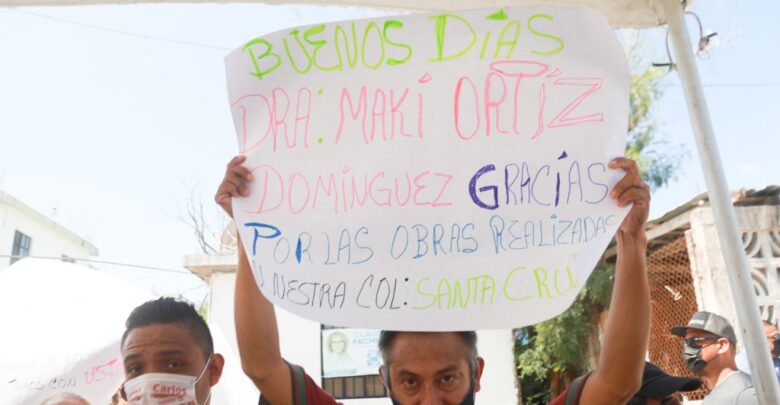 BUENOS DÍAS
DRA: MAKI ORTÍZ
DOMÍNGUEZ GRACÍAS
POR LAS OBRAS REALIZADAS
N NESTRA COL: SANTA CRU
Carlos